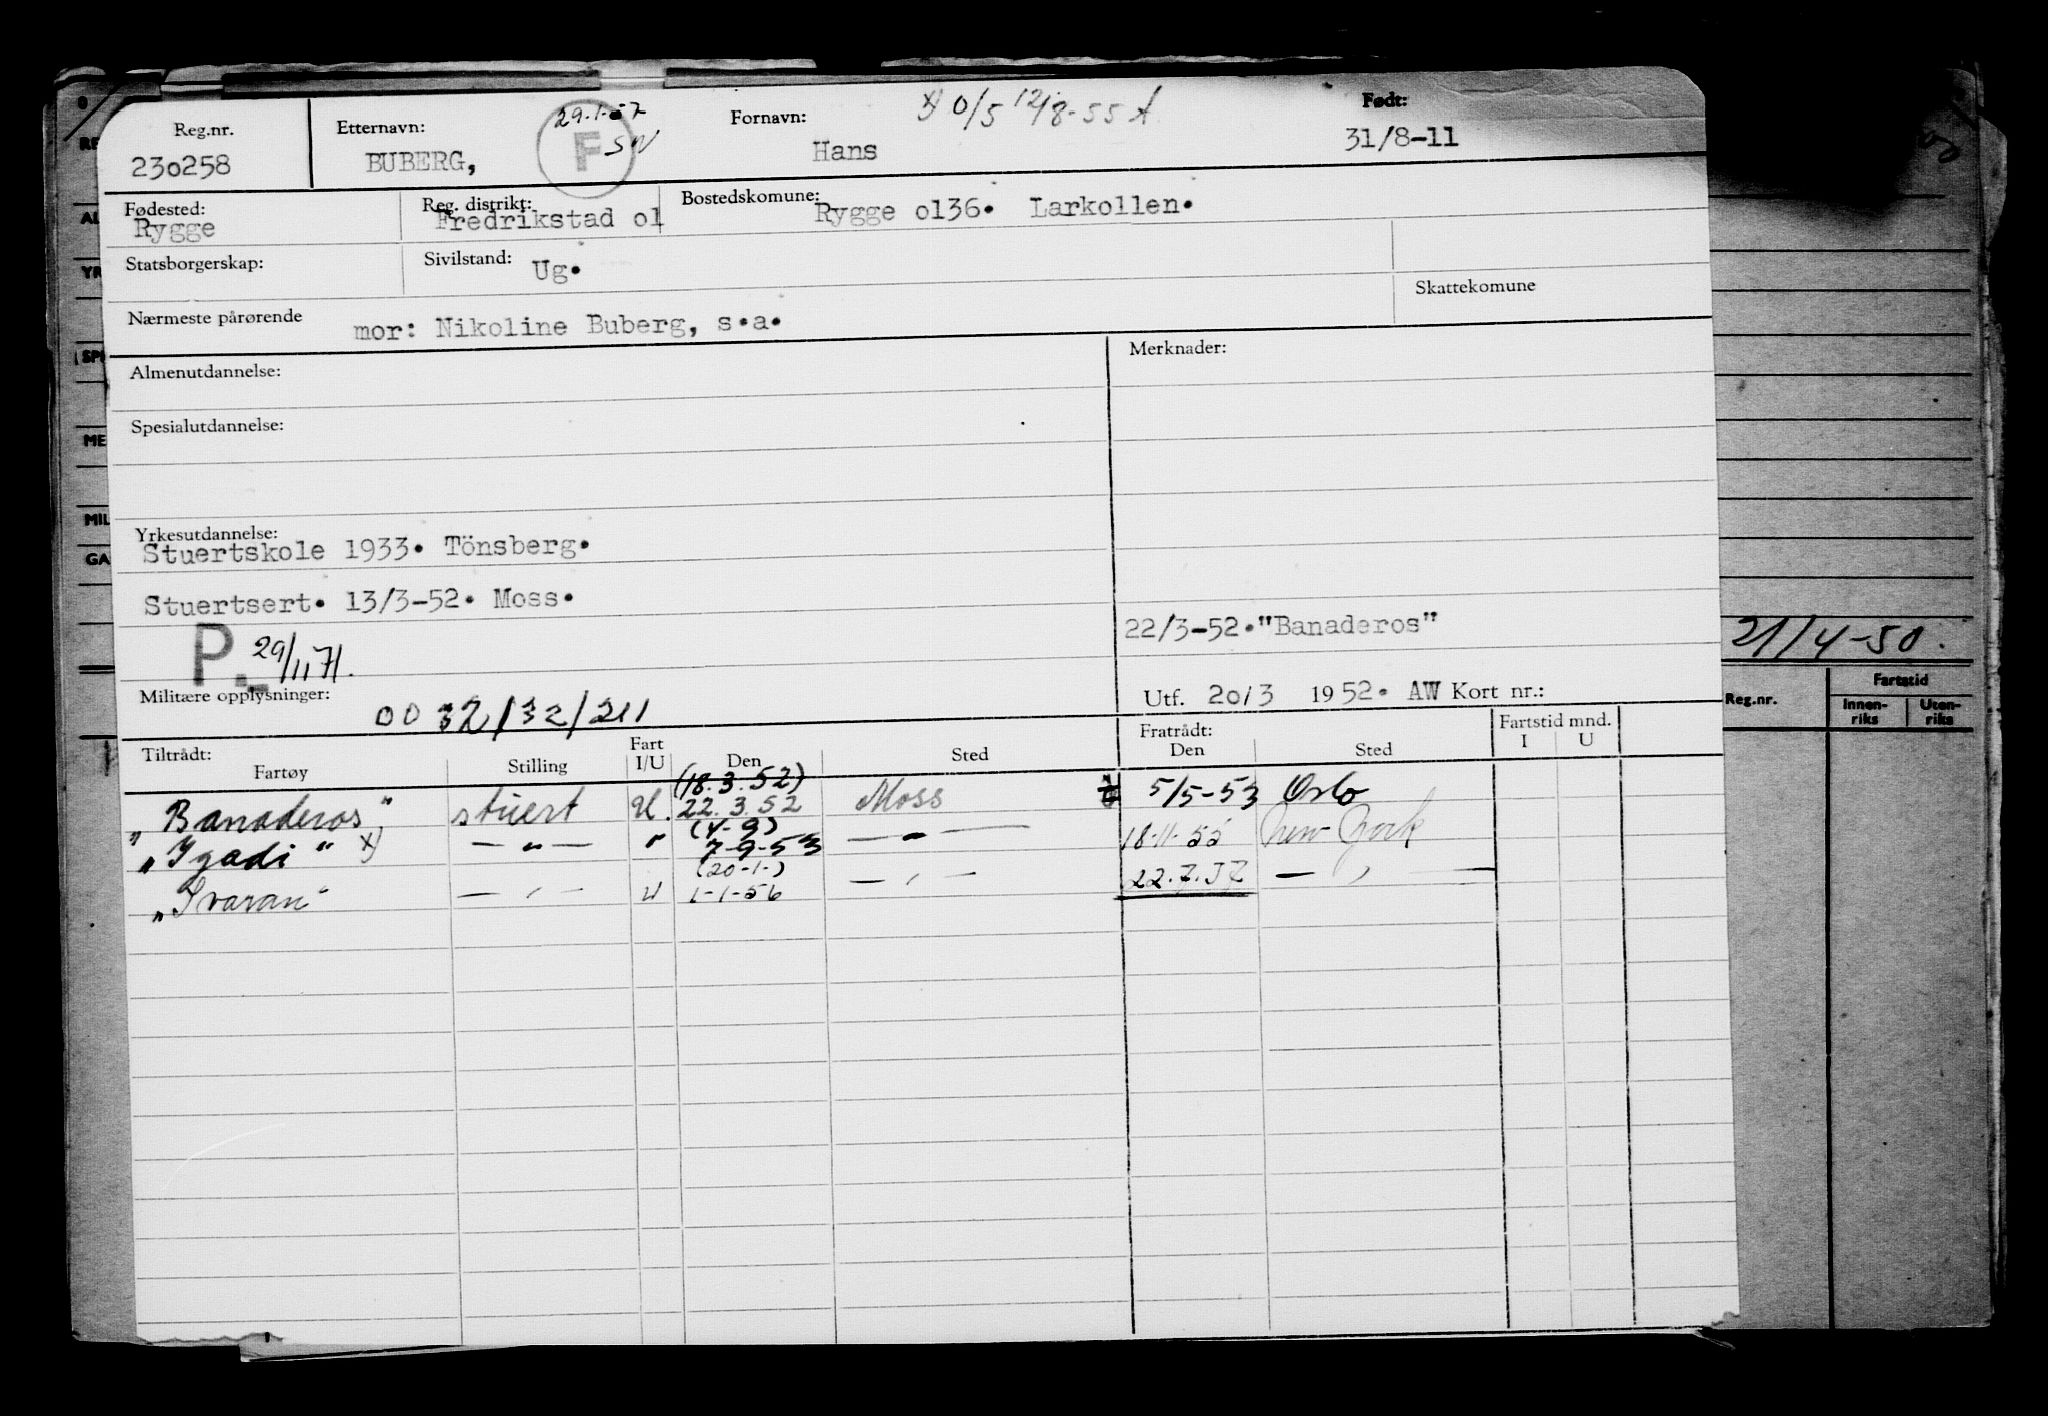 Reg.nr. Etternavn: 29.1.57 Fornavn: x) 0/5 12/8-55 A Født:
230258 BUBERG, F SW Hans 31/8-11
Fødested: Reg. distrikt: Bostedskomune:
Rygge Fredrikstad o1 Rygge o136. Larkollen.
Statsborgerskap: Sivilstand: Ug.
Skattekomune
Nærmeste pårørende mor: Nikoline Buberg, s.a.
Almenutdannelse: Merknader:
Spesialutdannelse:
Yrkesutdannelse:
Stuertskole 1933. Tönsberg.
Stuertsert. 13/3-52. Moss.
22/3-52."Banaderos"
21/4-50.
P. 29/1171.
Militære opplysninger: 0032/32/211
Utf. 20/3 1952. AW Kort nr.:
Reg.nr. Fartstid
Innen-riks Uten-riks
Tiltrådt: Fratrådt: Fartstid mnd.
Fartøy Stilling Fart I/U Den Sted Den Sted I U
(18.3.52)
"Banaderos" stuert U. 22.3.52 Moss 5/5-53 Oslo
(4-9)
"Igadi" x) — " — " 7-9-53 — " — 18-11-55 New York
(20-1-)
"Ivaran" — " — U 1-1-56 — " — 22.7.57 — " —